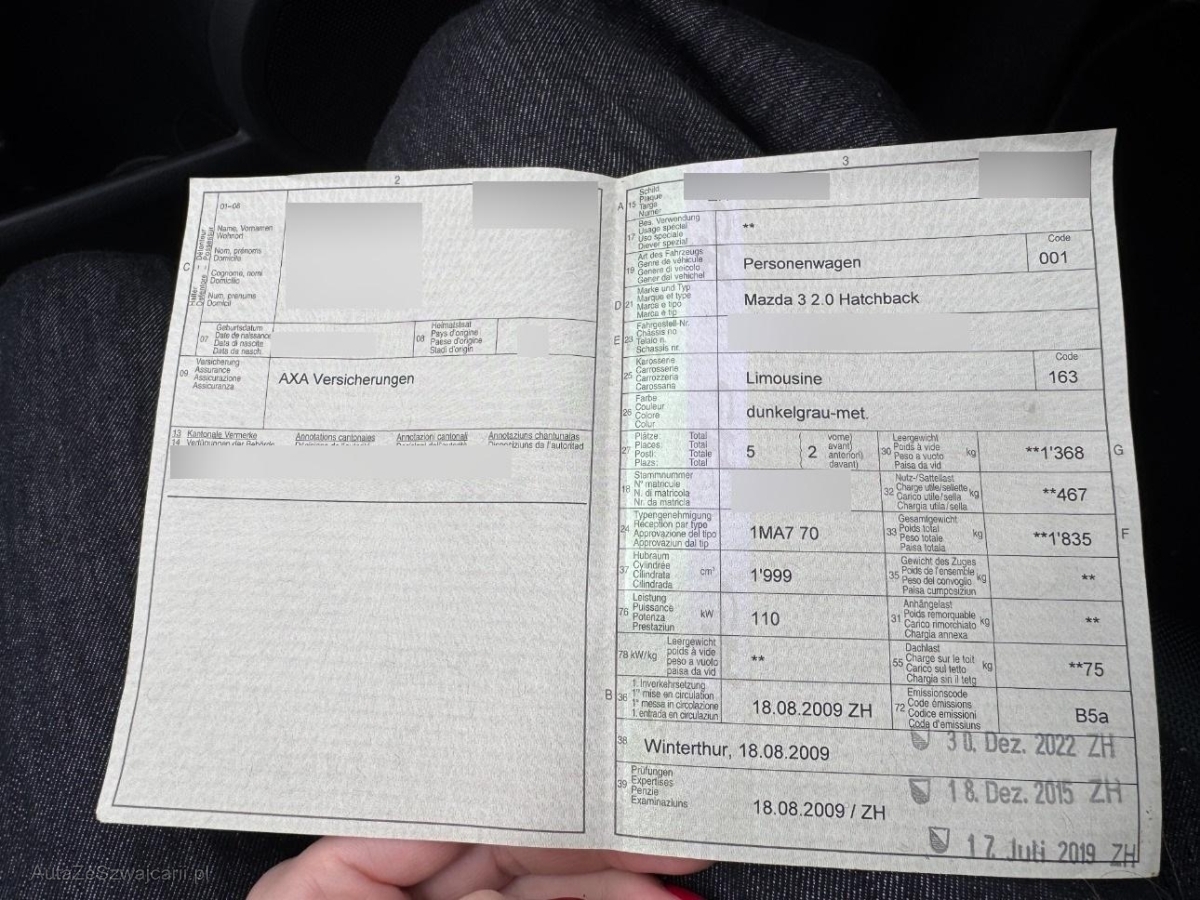 2
01-06
Name, Vornamen
Wohnort
Nom, prénoms
Domicile
C
Cognome, nomi
Domicilio
Num, prenums
Domicil
07
Geburtsdatum
Date de naissance
Data di nascita
Data da nasch.
08
Heimatstaat
Pays d'origine
Paese d'origine
Stadi d'origin
09
Versicherung
Assurance
Assicurazione
Assicuranza
AXA Versicherungen
13 Kantonale Vermerke Annotations cantonales Annotazioni cantonali Annotaziuns chantunalas
14
3
A 15
Schild
Plaque
Targa
Numer
17
Bes. Verwendung
Usage spécial
Uso speciale
Diever spezial
**
19
Art des Fahrzeugs
Genre de véhicule
Genere di veicolo
Gener dal vehichel
Personenwagen
Code
001
D 21
Marke und Typ
Marque et type
Marca e tipo
Marca e tip
Mazda 3 2.0 Hatchback
E 23
Fahrgestell-Nr.
Châssis no
Telaio n.
Schassis nr.
25
Karosserie
Carrosserie
Carrozzeria
Carossaria
Limousine
Code
163
26
Farbe
Couleur
Colore
Colur
dunkelgrau-met.
27
Plätze: Total
Places: Total
Posti: Totale
Plazs: Total
5
2
vorne)
avant)
anteriori)
davant)
30
Leergewicht
Poids à vide
Peso a vuoto
Paisa da vid
kg
**1'368
G
18
Stammnummer
N° matricule
N. di matricola
Nr. da matricla
32
Nutz-/Sattellast
Charge utile/sellette
Carico utile/sella
Chargia utila/sella
kg
**467
24
Typengenehmigung
Réception par type
Approvazione del tipo
Approvaziun dal tip
1MA7 70
33
Gesamtgewicht
Poids total
Peso totale
Paisa totala
kg
**1'835
F
37
Hubraum
Cylindrée
Cilindrata
Cilindrada
cm³
1'999
35
Gewicht des Zuges
Poids de l'ensemble
Peso del convoglio
Paisa cumposiziun
kg
**
76
Leistung
Puissance
Potenza
Prestaziun
kW
110
31
Anhängelast
Poids remorquable
Carico rimorchiato
Chargia annexa
kg
**
78 kW/kg
Leergewicht
poids à vide
peso a vuoto
paisa da vid
**
55
Dachlast
Charge sur le toit
Carico sul tetto
Chargia sin il tetg
kg
**75
B 36
1. Inverkehrsetzung
1re mise en circulation
1a messa in circolazione
1. entrada en circulaziun
18.08.2009 ZH
72
Emissionscode
Code émissions
Codice emissioni
Code d'emissiuns
B5a
38
Winterthur, 18.08.2009
30. Dez. 2022 ZH
39
Prüfungen
Expertises
Perizie
Examinaziuns
18.08.2009 / ZH
18. Dez. 2015 ZH
17. Juli 2019 ZH
AutaZeSzwajcarii.pl